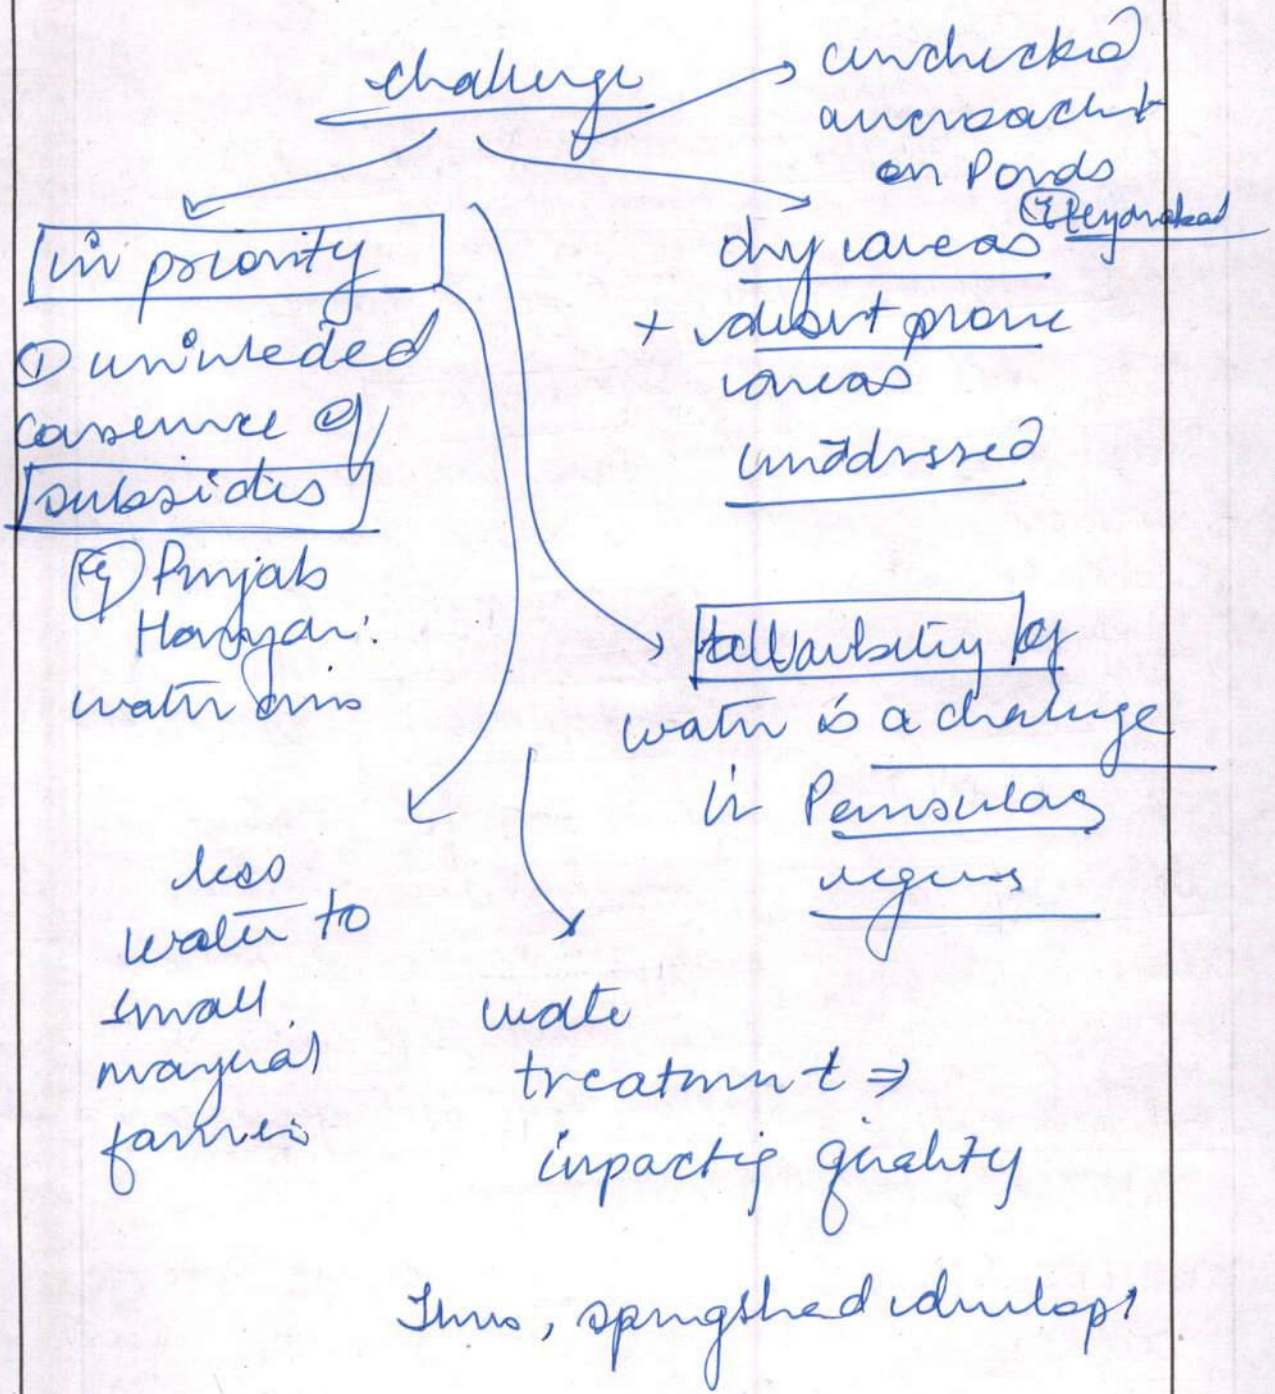 challenge
unchecked
encroachmt
on Ponds
eg Hyderabad
in priority
① unintended
consence of
subsidies
eg Punjab
Haryana
water crisis
dry areas
+ desert prone
areas
unaddressed
availability of
water is a challenge
in Peninsular
regions
less
water to
small
marginal
farmers
waste
treatment ⇒
impacting quality
Thus, springshed